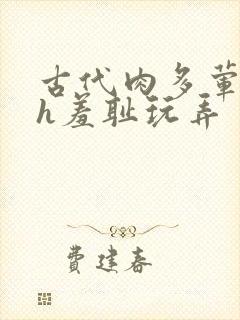 古代肉多荤
h羞耻玩弄
费建春